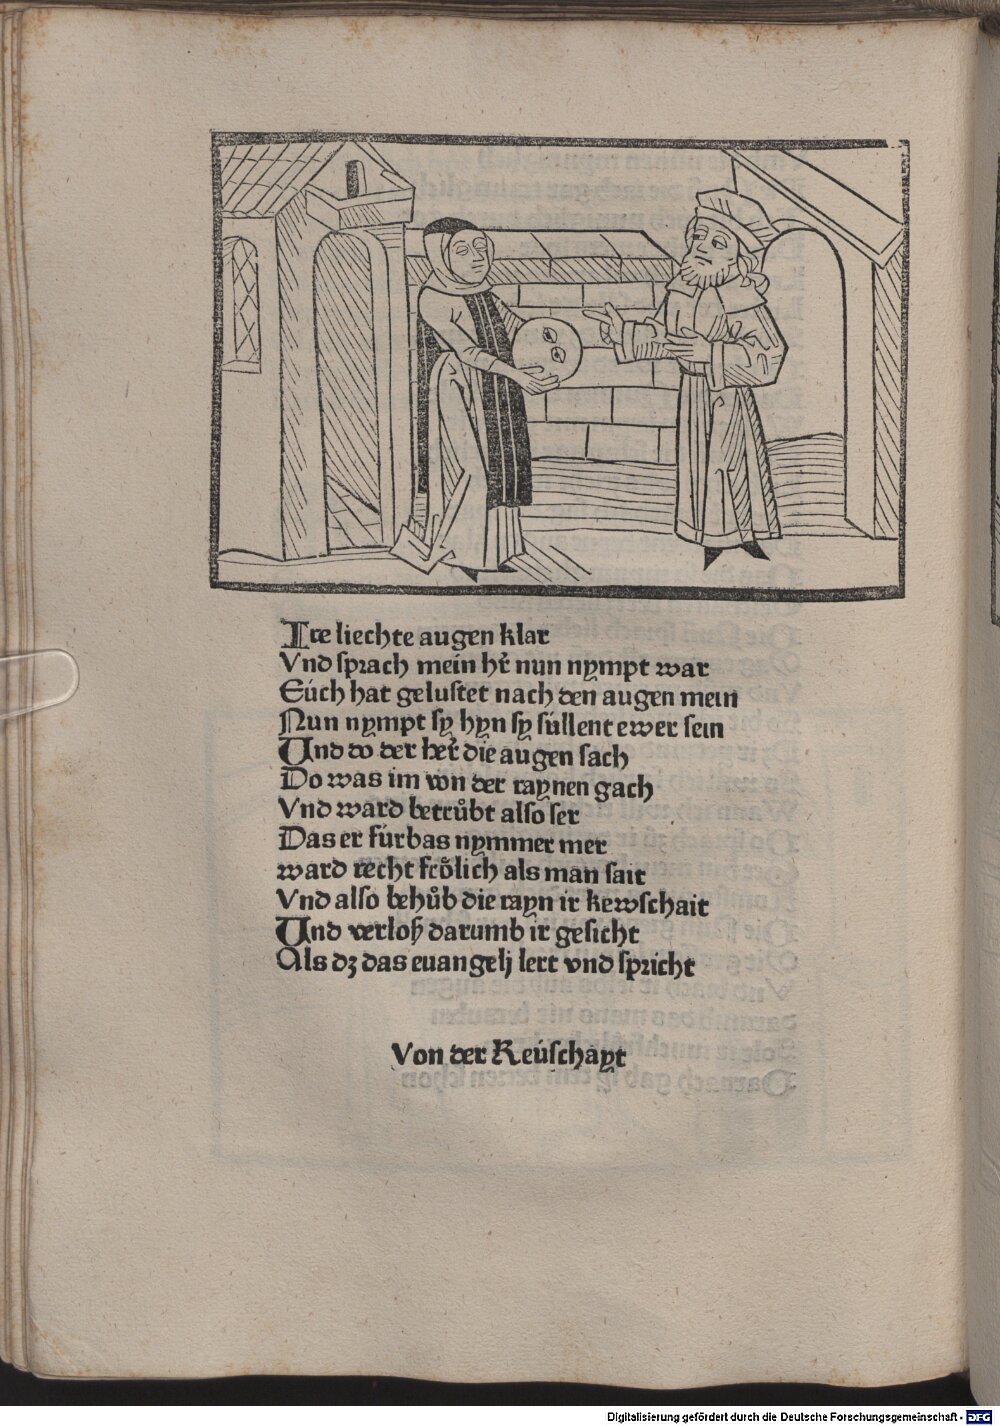 Ire liechte augen klar
Vnd sprach mein hr̄ nun nympt war
Eüch hat gelustet nach den augen mein
Nun nympt sy hyn sy süllent ewer sein
Und do der her̄ die augen sach
Do was im von der raynen gach
Vnd ward betrůbt also ser
Das er fürbas nymmer mer
ward recht frölich als man sait
Vnd also behůb die rayn ir kewschait
Und verloß darumb ir gesicht
Als dz das euangelj lert vnd spricht
Von der Keüschayt
Digitalisierung gefördert durch die Deutsche Forschungsgemeinschaft - DFG